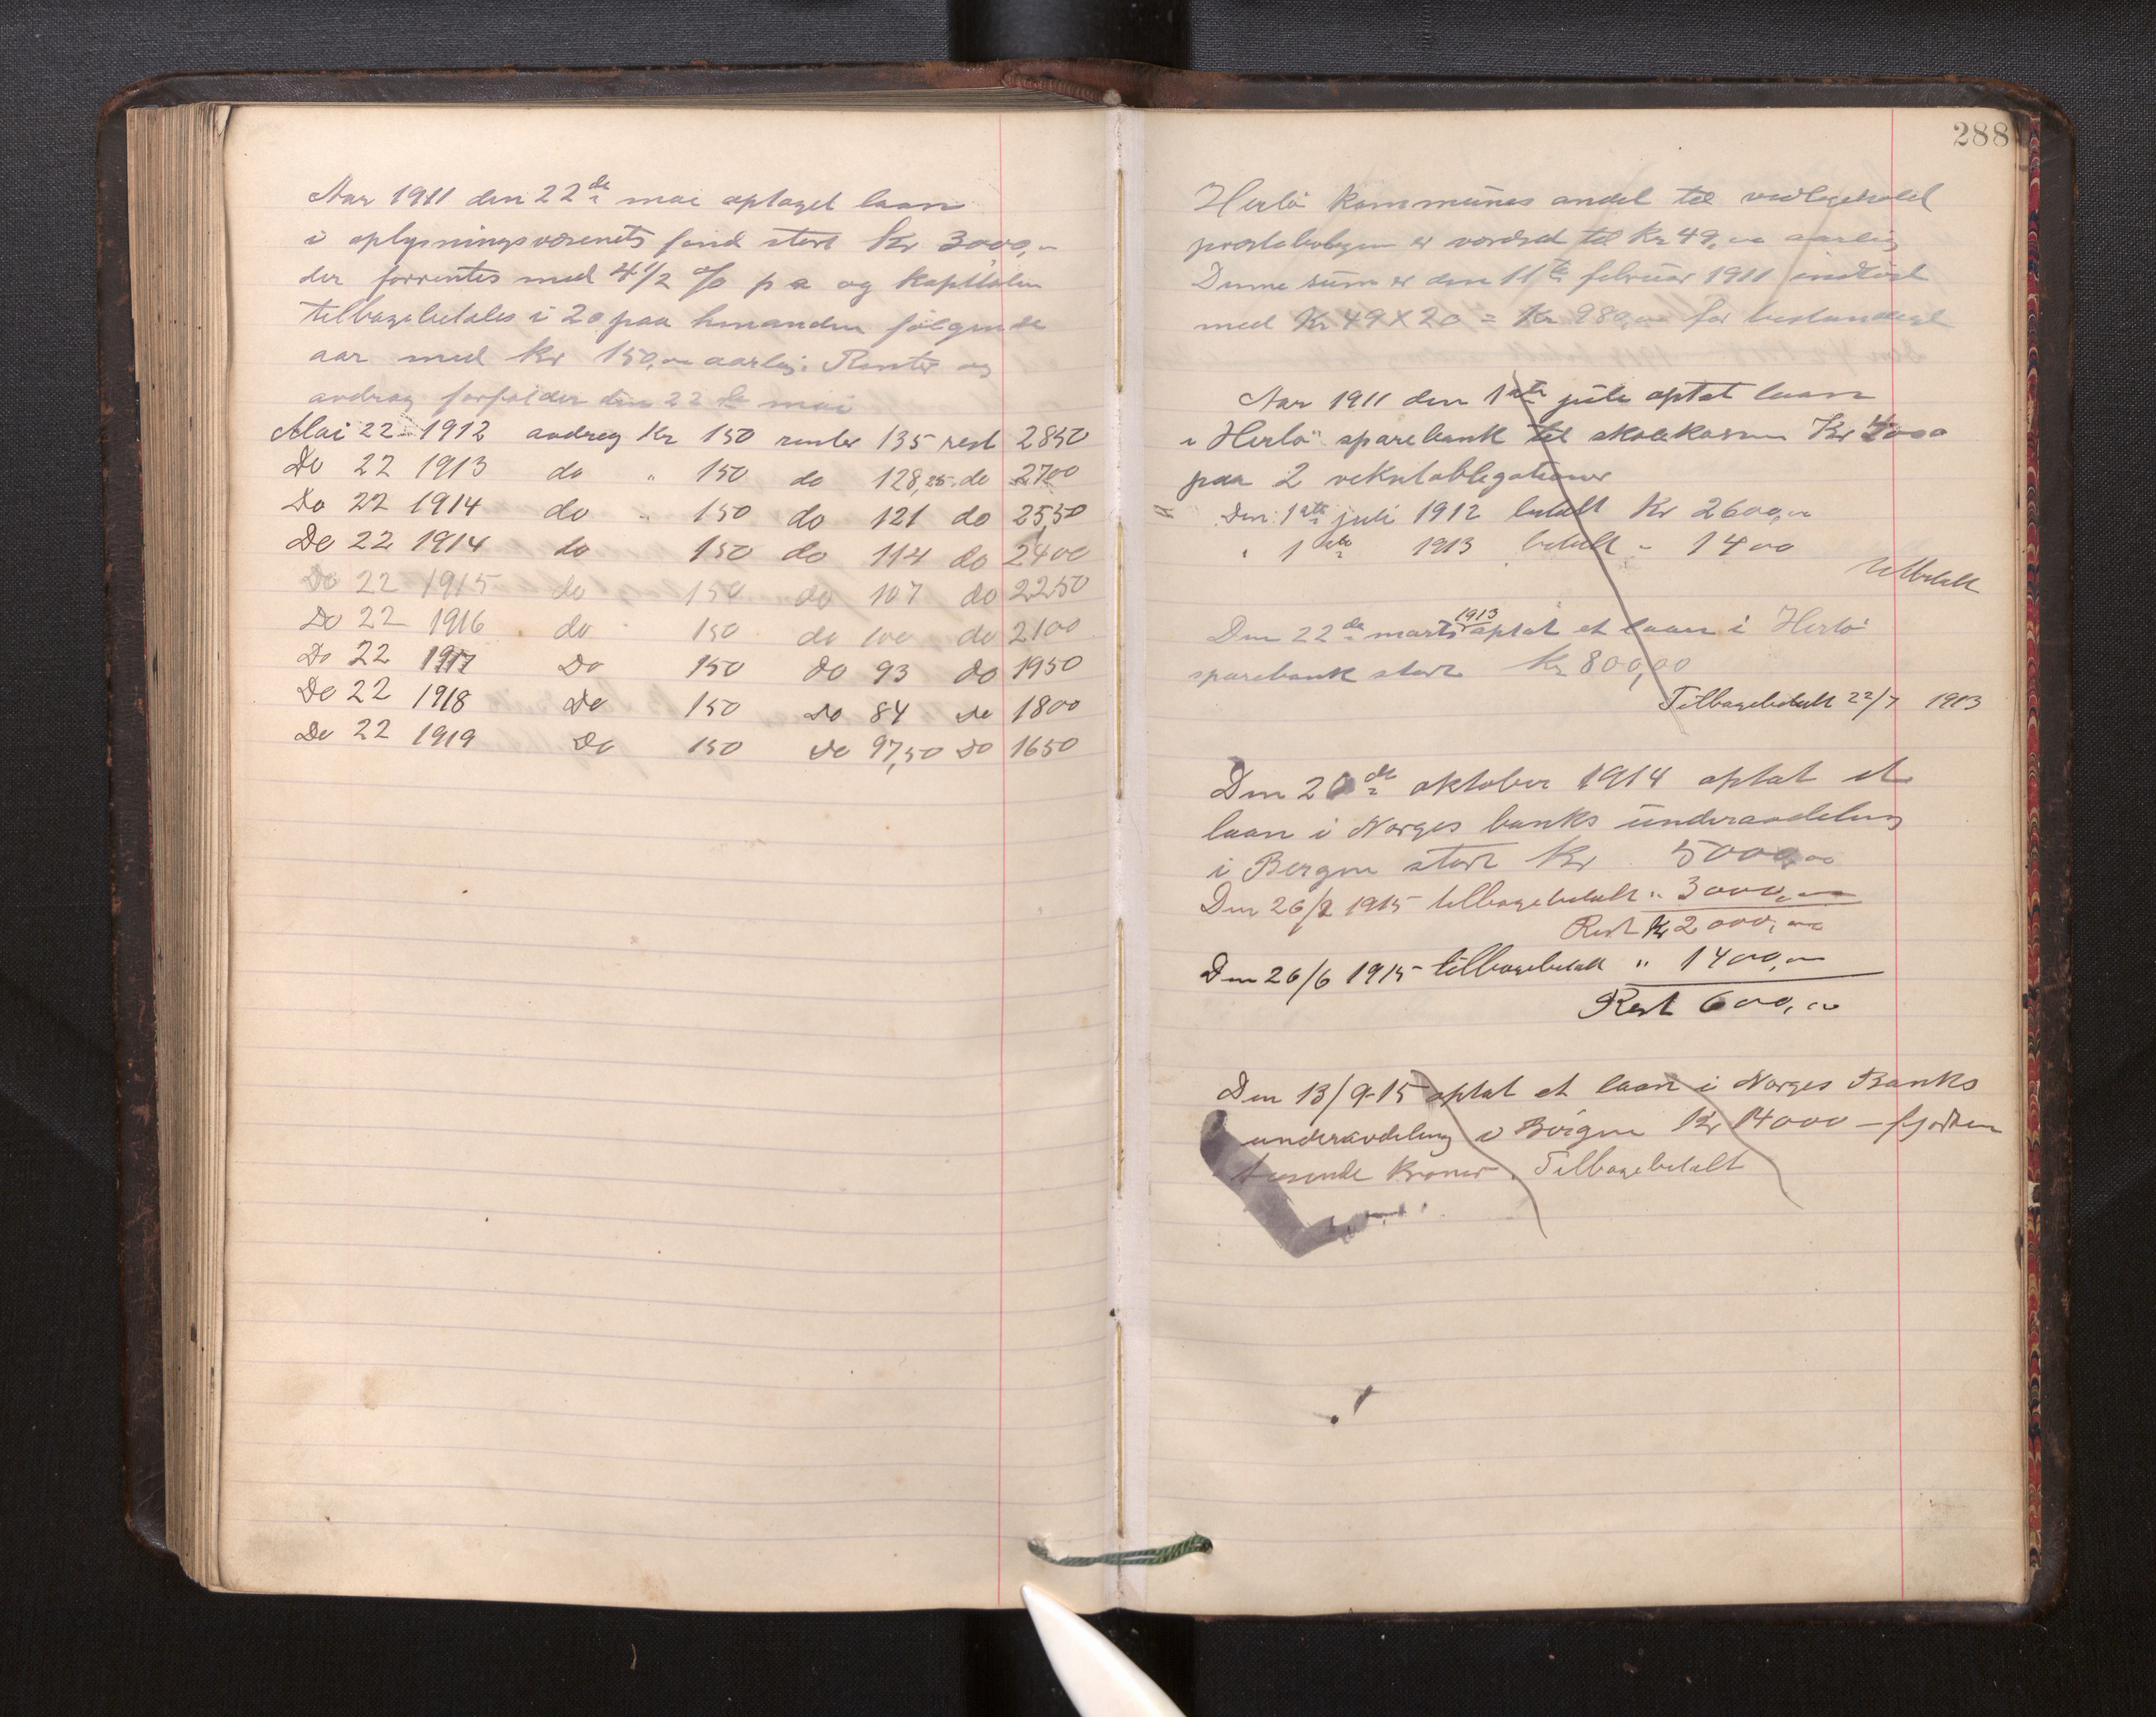 Aar 1911 den 22de mai optaget laan
i oplysningsvæsenets fond stort Kr 3000,-
der forrentes med 4 1/2 % p a og kapitalen
tilbagebetales i 20 paa hinanden følgende
aar med kr 150,00 aarlig. Renter og
avdrag forfalder den 22de mai
Mai 22 1912 avdrag Kr 150 renter 135 rest 2850
Do 22 1913 do " 150 do 128,25 do 2700
Do 22 1914 do " 150 do 121 do 2550
Do 22 1914 do 150 do 114 do 2400
Do 22 1915 do 150 do 107 do 2250
Do 22 1916 do 150 do 100 do 2100
Do 22 1917 Do 150 Do 93 do 1950
Do 22 1918 Do 150 Do 84 Do 1800
Do 22 1919 Do 150 Do 97,50 Do 1650
288
Herlö kommunes andel til vedligehold
præstebolgen er vordsat til Kr 49,00 aarlig
Denne sum er den 11te februar 1911 indløst
med Kr 49 X 20 = Kr 980,00 for bestandigt
Aar 1911 den 1ste juli optat laan
i Herlö sparebank til skolekassen Kr 4000
paa 2 vekselobligationer
Den 1ste juli 1912 betalt Kr 2600,00
" 1ste 1913 betalt - 1400
Utbetalt
Den 22de marts 1913 optat et laan i Herlö
sparebank stort Kr 800,00
Tilbagebetalt 22/7 1913
Den 20de oktober 1914 optat et
laan i Norges banks underavdeling
i Bergen stort Kr 5000,00
Den 26/2 1915 tilbagebetalt " 3000,00
Rest Kr 2000,00
Den 26/6 1915 tilbagebetalt " 1400,00
Rest 600,00
Den 13/9-15 optat et laan i Norges Banks
underavdeling i Bergen Kr 14000 - fjorten
tusende kroner. Tilbagebetalt